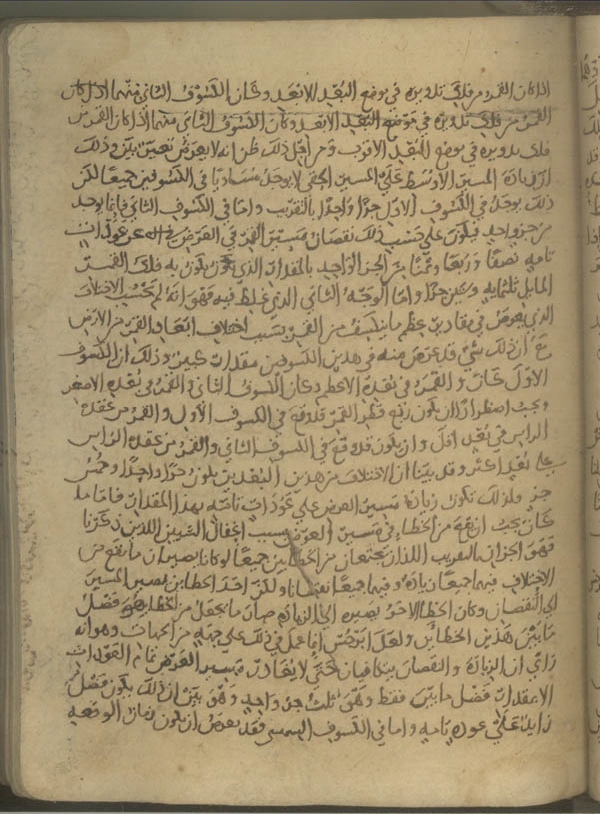 اذا كان القمر من فلك تدويره في موضع البعد الابعد وكان الكسوف الثاني منهما اذا كان
القمر من فلك تدويره في موضع البعد الابعد وكان الكسوف الثاني منهما اذا كان القمر من
فلك تدويره في موضع البعد الاقرب ومن اجل ذلك ظن انه لا يعرض تغيير بين وذلك
ان زيادة المسير الاوسط على المسير الحقي لا يوجد متساويا في الكسوفين جميعا لكن
ذلك يوجد في الكسوف الاول جزا واحدا بالتقريب واما في الكسوف الثاني فانما يوجد
من جزو واحد فيكون على حسب ذلك نقصان مسير القمر في العرض عن عودات
تامه نصفا وربعا وثمنا من الجز الواحد بالمقدار الذي يكون به فلك القمر
المايل ثلثمايه وستين جزا واما الوجه الثاني الذي غلط فيه فهو انه لم يحسب الاختلاف
الذي يعرض في مقادير عظم ما ينكسف من القمر بسبب اختلاف ابعاد القمر من الارض
مع ان ذلك شي قد عرض منه في هذين الكسوفين مقدار كبير وذلك ان الكسوف
الاول كان والقمر في بعده الاعظم وكان الكسوف الثاني والقمر في بعده الاصغر
ويجب اضطرارا ان يكون ربع قطر القمر قد وقع في الكسوف الاول والقمر من عقدة
الراس في بعد اقل وان يكون قد وقع في الكسوف الثاني والقمر من عقدة الراس
على بعد اكثر وقد بينا ان الاختلاف من هذين البعدين يكون جزا واحدا وخمس
جز ولذلك تكون زيادة مسير العرض على عودات تامه بهذا المقدار فاما ما
كان يجب ان يقع من الخطاء في مسير العرض بسبب اغفال الشيين اللذين ذكرنا
فهو جزان بالتقريب اللذان يجتمعان من الخطاين جميعا لو كانا يصيران ما يقع من
الاختلاف فيهما جميعا زيادة وفيهما جميعا نقصانا ولكن احد الخطاين يصير المسير
الى النقصان وكان الخطا الاخر يصيره الى الزيادة صار ما يحصل من الخطا هو فضل
ما بين هذين الخطاين ولعل ابرخس انما عمل في ذلك على جهة من الجهات وهو انه
راى ان الزيادة والنقصان يتكافيان حتى لا يغادر مسير العرض تمام العودات
الا بمقدار فضل ما بين فقط وهو ثلث جزو واحد وهو بين ان ذلك يكون فضل
زايد على عوده تامه واما في الكسوف الشمسي فقد يعرض ان يكون زمان الوقعه